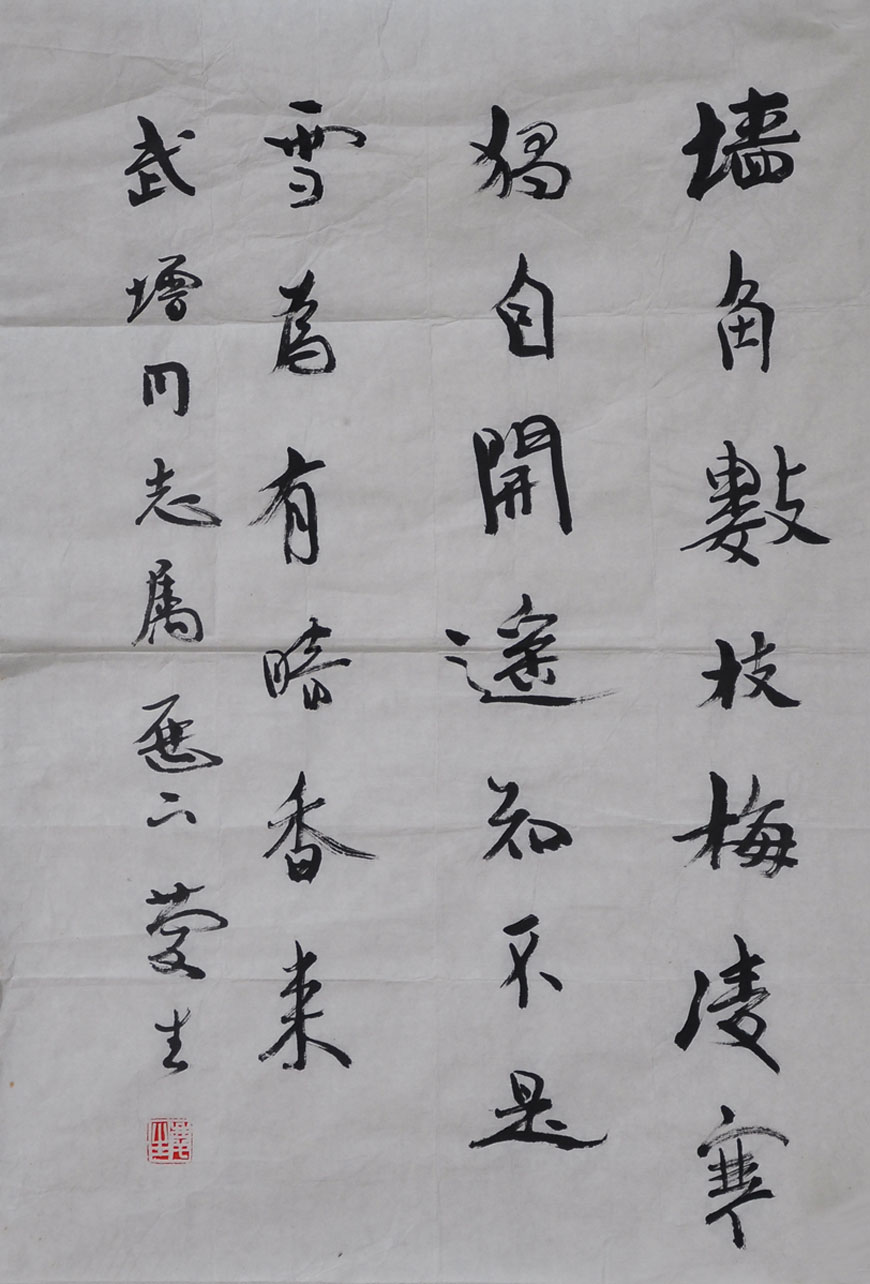 墙角數枝梅凌寒
獨自開遥知不是
雪為有暗香来
武增同志属应正夔生